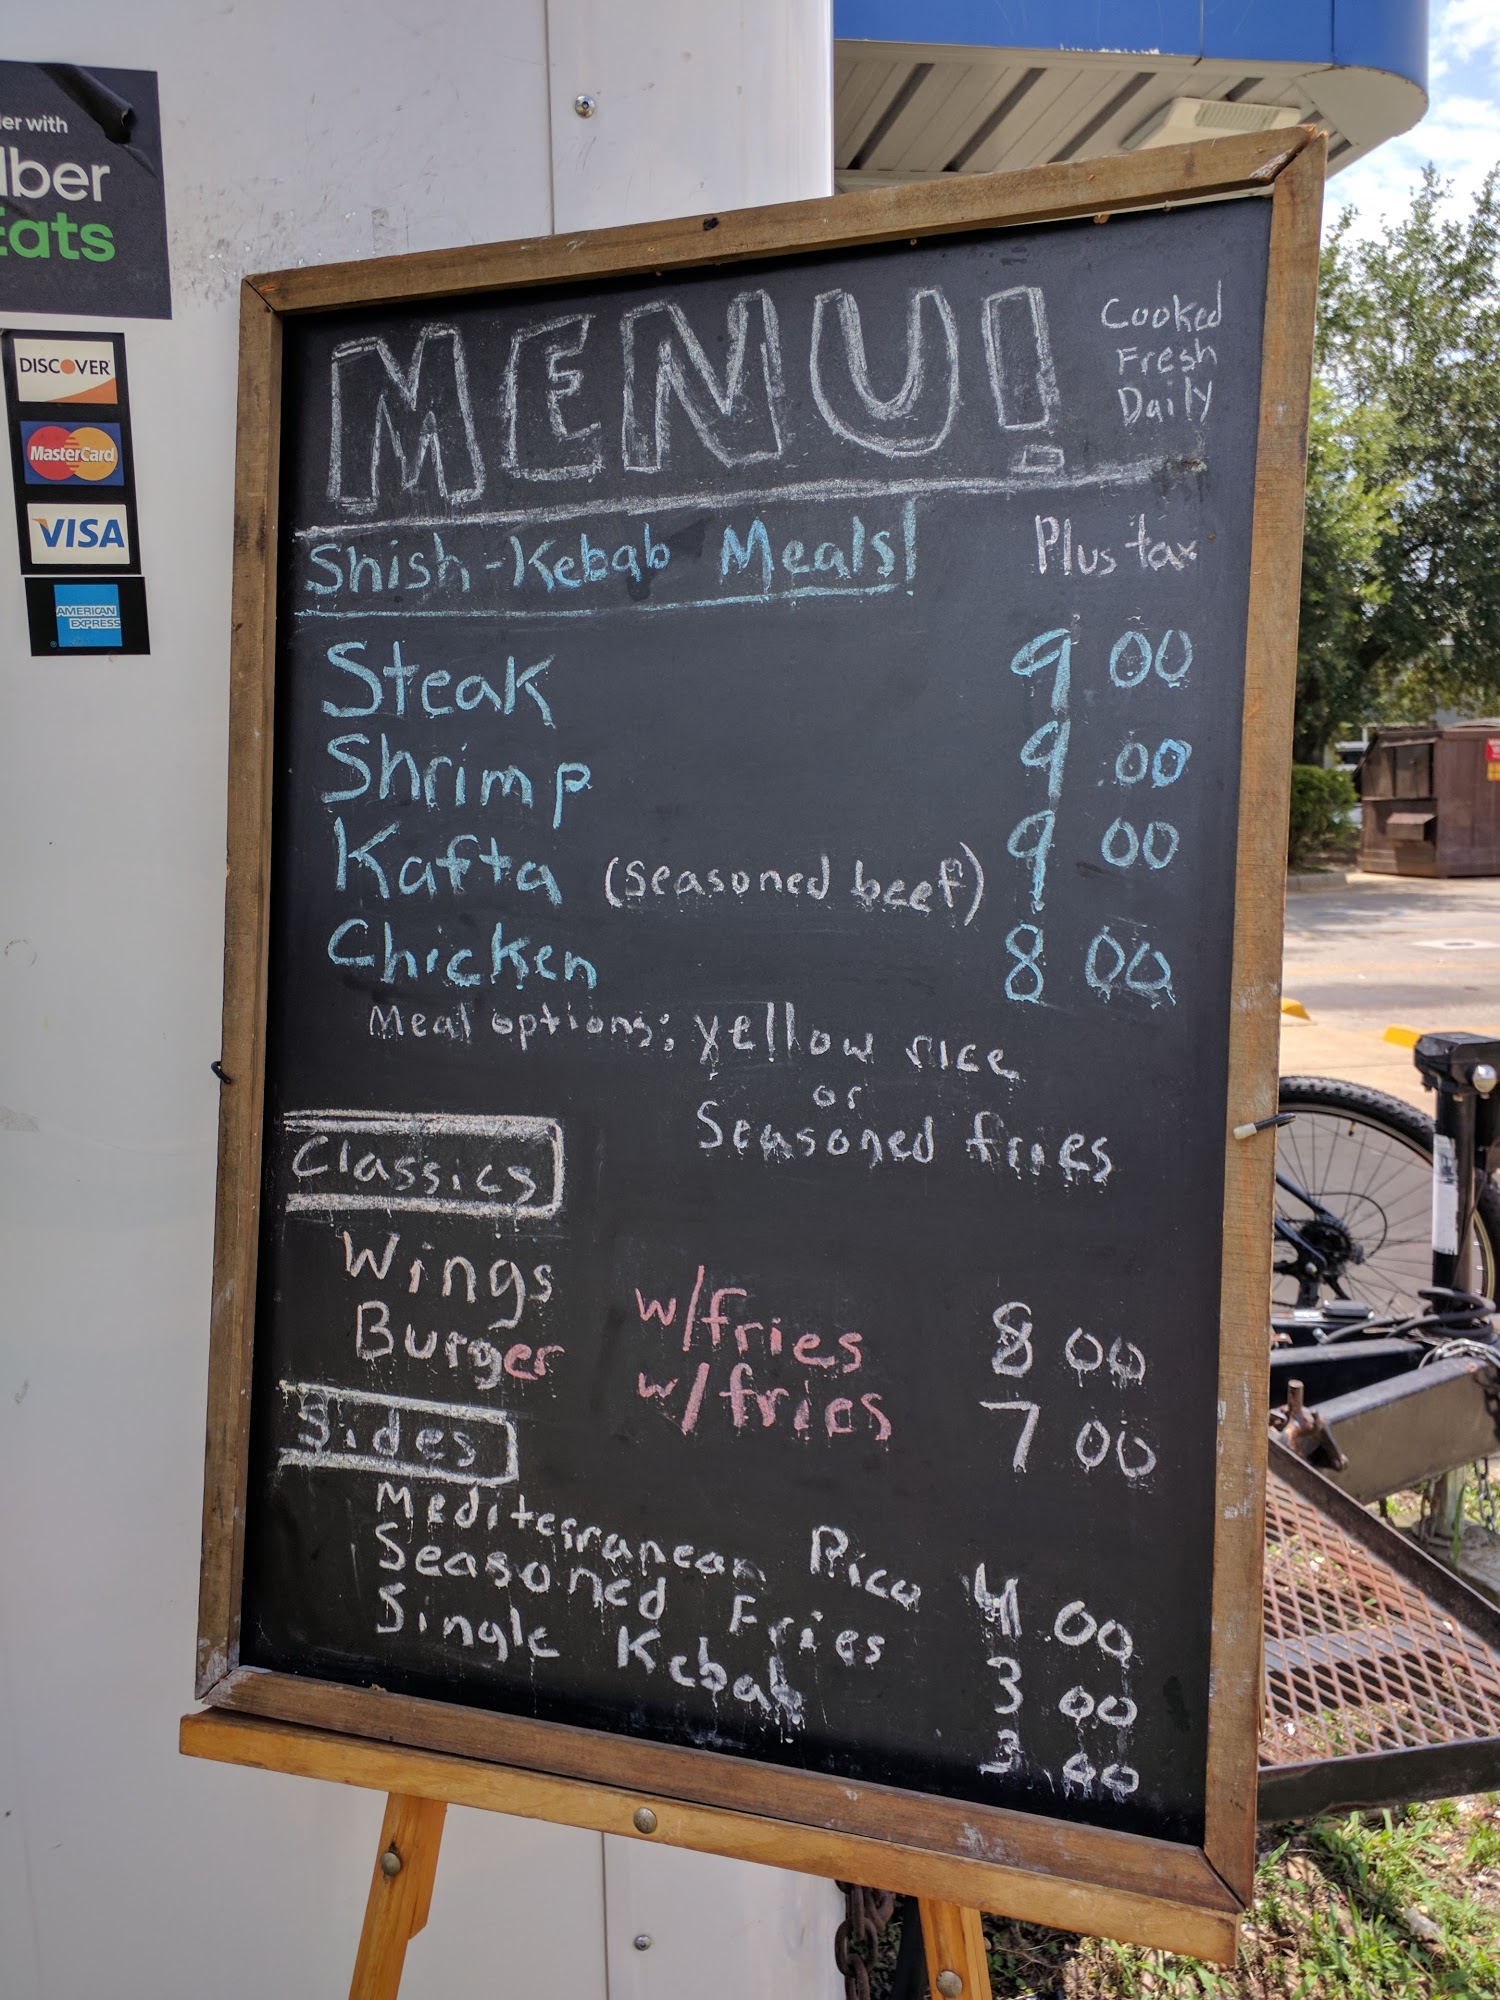 er with
Uber
Eats
DISCOVER
MasterCard
VISA
AMERICAN
EXPRESS
MENU!
Cooked
Fresh
Daily
Shish-Kebab Meals! Plus tax
Steak 9 00
Shrimp 9 00
Kafta (seasoned beef) 9 00
Chicken 8 00
Meal options: yellow rice
or
Seasoned fries
Classics
Wings w/fries 8 00
Burger w/fries 7 00
Sides
Mediterranean Rice 4 00
Seasoned Fries 3 00
Single Kebab 3 00